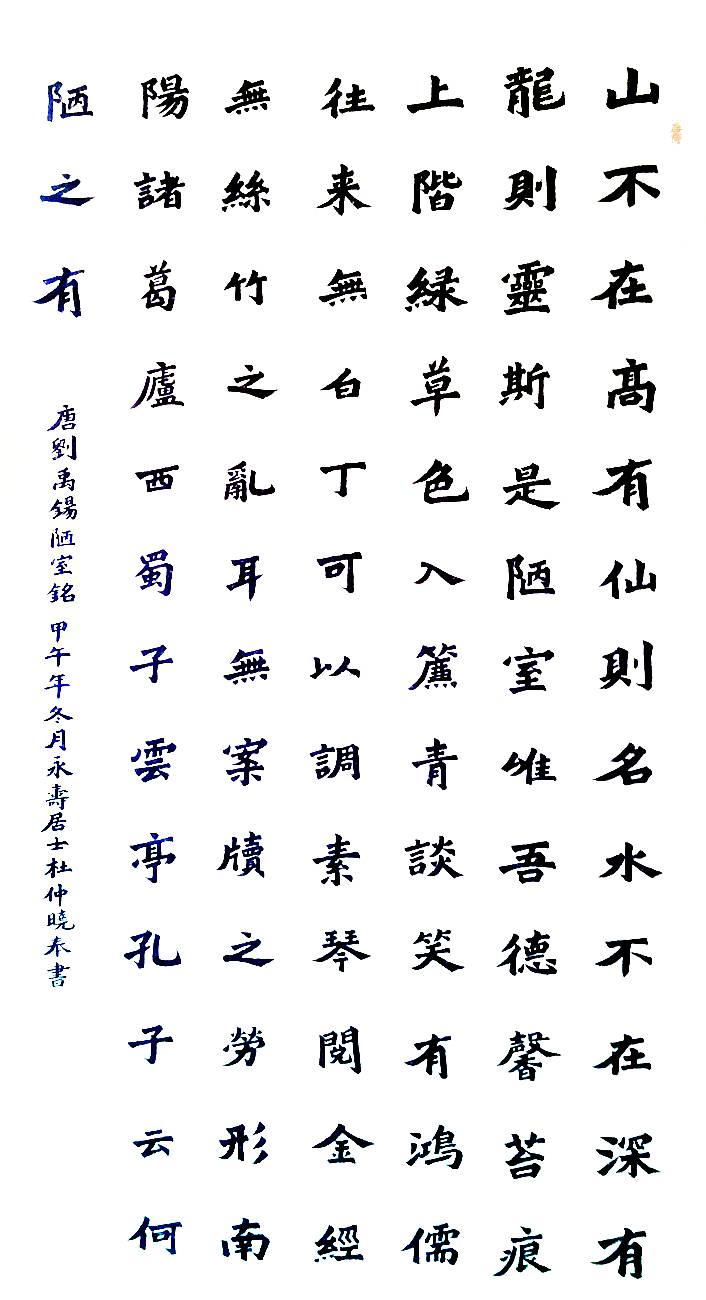 山不在高有仙則名水不在深有
龍則靈斯是陋室唯吾德馨苔痕
上階緑草色入簾青談笑有鴻儒
往来無白丁可以調素琴閱金經
無絲竹之亂耳無案牘之勞形南
陽諸葛廬西蜀子雲亭孔子云何
陋之有
唐劉禹錫陋室銘甲午年冬月永壽居士杜仲曉奉書